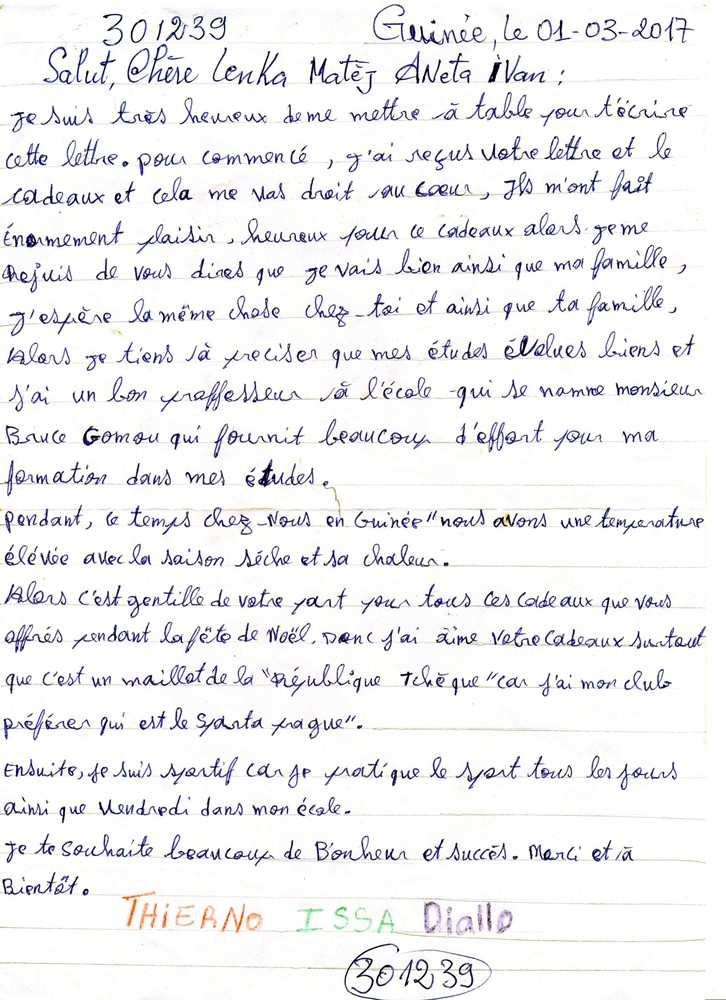 301239 Guinée, le 01-03-2017
Salut, Chère Lenka Matèj ANeta iVan :
Je suis très heureux deme mettre à table pour t'écrire
cette lettre. pour commencé, j'ai reçus votre lettre et le
cadeaux et cela me vas droit au cœur, Ils m'ont fait
Énormement plaisir, heureux pour ce cadeaux alors je me
Rejuis de vous dires que je vais bien ainsi que ma famille,
j'espère la même chose chez-toi et ainsi que ta famille,
Alors je tiens à preciser que mes études éValues biens et
j'ai un bon proffesseur à l'école qui se namme monsieur
Bruce Gomou qui fournit beaucoup d'effort pour ma
formation dans mes études.
pendant, ce temps chez-Nous en Guinée" nous avons une temperature
élévée avec la saison séche et sa chaleur.
Alors c'est gentille de votre part pour tous ces cadeaux que vous
offrés pendant la fête de Noël. Donc j'ai aime votre cadeaux surtout
que c'est un maillot de la "République Tchèque" car j'ai mon club
préférer qui est le Sparta prague".
Ensuite, je suis sportif car je pratique le sport tous les jours
ainsi que Vendredi dans mon école.
Je te souhaite beaucoup de B'onheur et succès. Merci et à
Bientôt.
THiERNo ISSA Diallo
301239